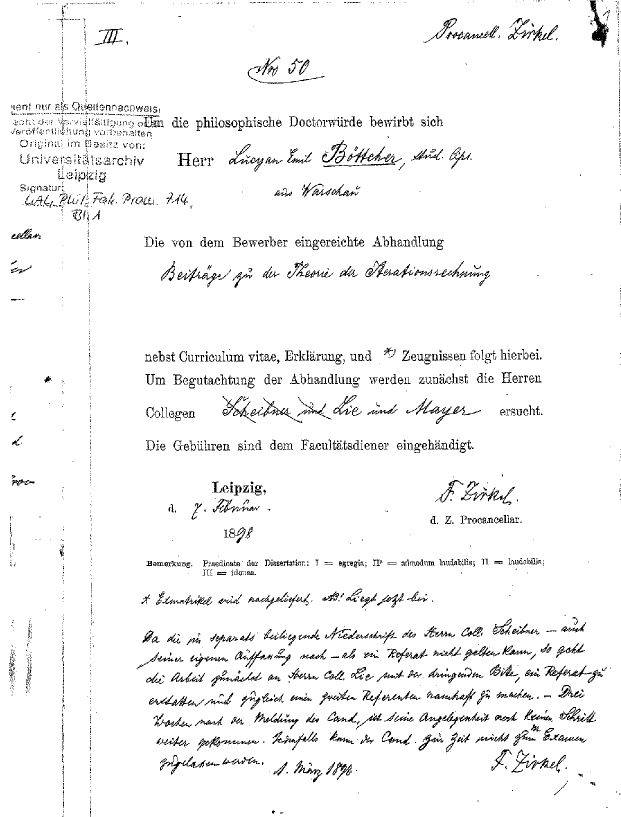 III.
Procancell. Zirkel.
1
No 50
nent nur als Quellennachweis,
echt der Vervielfältigung oder
Veröffentlichung vorbehalten
Original im Besitz von:
Universitätsarchiv
Leipzig
Signatur:
UAL, Phil. Fak. Prom. 714,
Bl. 1
Um die philosophische Doctorwürde bewirbt sich
Herr Lucyan Emil Böttcher, stud.
aus Warschau
Die von dem Bewerber eingereichte Abhandlung
Beiträge zu der Theorie der Iterationsrechnung
cellar
nebst Curriculum vitae, Erklärung, und *) Zeugnissen folgt hierbei.
Um Begutachtung der Abhandlung werden zunächst die Herren
Collegen Scheibner und Lie und Mayer ersucht.
Die Gebühren sind dem Facultätsdiener eingehändigt.
Leipzig,
d. 7. Februar.
1898
F. Zirkel.
d. Z. Procancellar.
Bemerkung. Praedicate der Dissertation: I = egregia; II* = admodum laudabilis; II = laudabilis;
III = idonea.
* Exmatrikel wird nachgeliefert. NB! Liegt jetzt bei.
Da die in separato beiliegende Niederschrift des Herrn Coll. Scheibner – auch
seiner eigenen Auffassung nach – als ein Referat nicht gelten kann, so geht
die Arbeit zunächst an Herrn Coll. Lie mit der dringenden Bitte, ein Referat zu
erstatten und zugleich einen zweiten Referenten namhaft zu machen. – Drei
Wochen nach der Meldung des Cand. ist seine Angelegenheit noch keinen Schritt
weiter gekommen. kann der Cand. zur Zeit nicht zum Examen
zugelassen werden.
1. März 1898.
F. Zirkel.